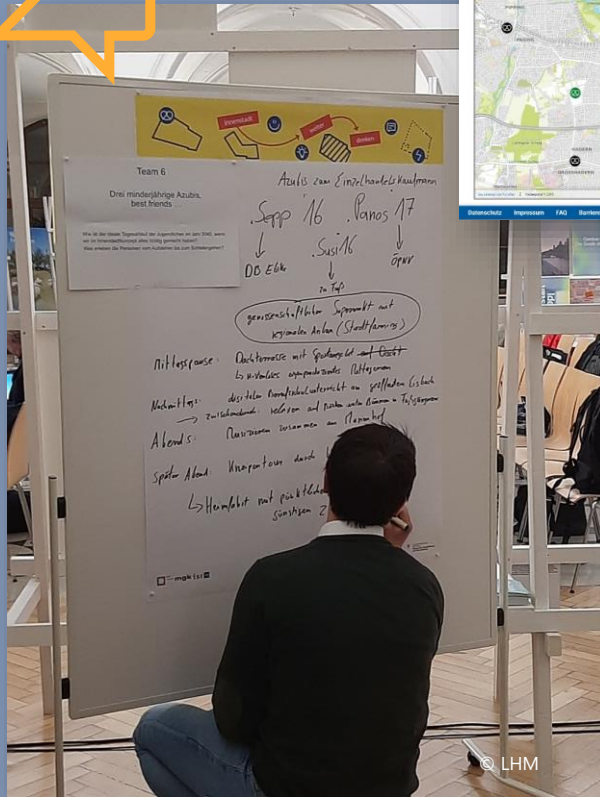 PASING
HADERN
Datenschutz Impressum FAQ
Innenstadt
weiter
denken
Team 6
Drei minderjährige Azubis,
best friends ...
Wie ist der ideale Tagesablauf der Jugendlichen im Jahr 2040, wenn
wir im Innenstadtkonzept alles richtig gemacht haben?
Was erleben die Personen vom Aufstehen bis zum Schlafengehen?
Azubis zum Einzelhandelskaufmann
Sepp 16 Panos 17
Susi 16
DB ÖPNV
zu Fuß
genossenschaftlicher Supermarkt mit
regionalem Anbau (Stadtfarming)
Mittagspause: Dachterrasse mit
Nachmittags: digitaler Berufsschulunterricht am Eisbach
zwischendurch: relaxen auf unter Bäumen in Fußgängerzone
Abends: Musizieren zusammen am Marienhof
Später Abend: Kneipentour durch
Heimfahrt mit pünktlichem
günstigen
mgk
© LHM